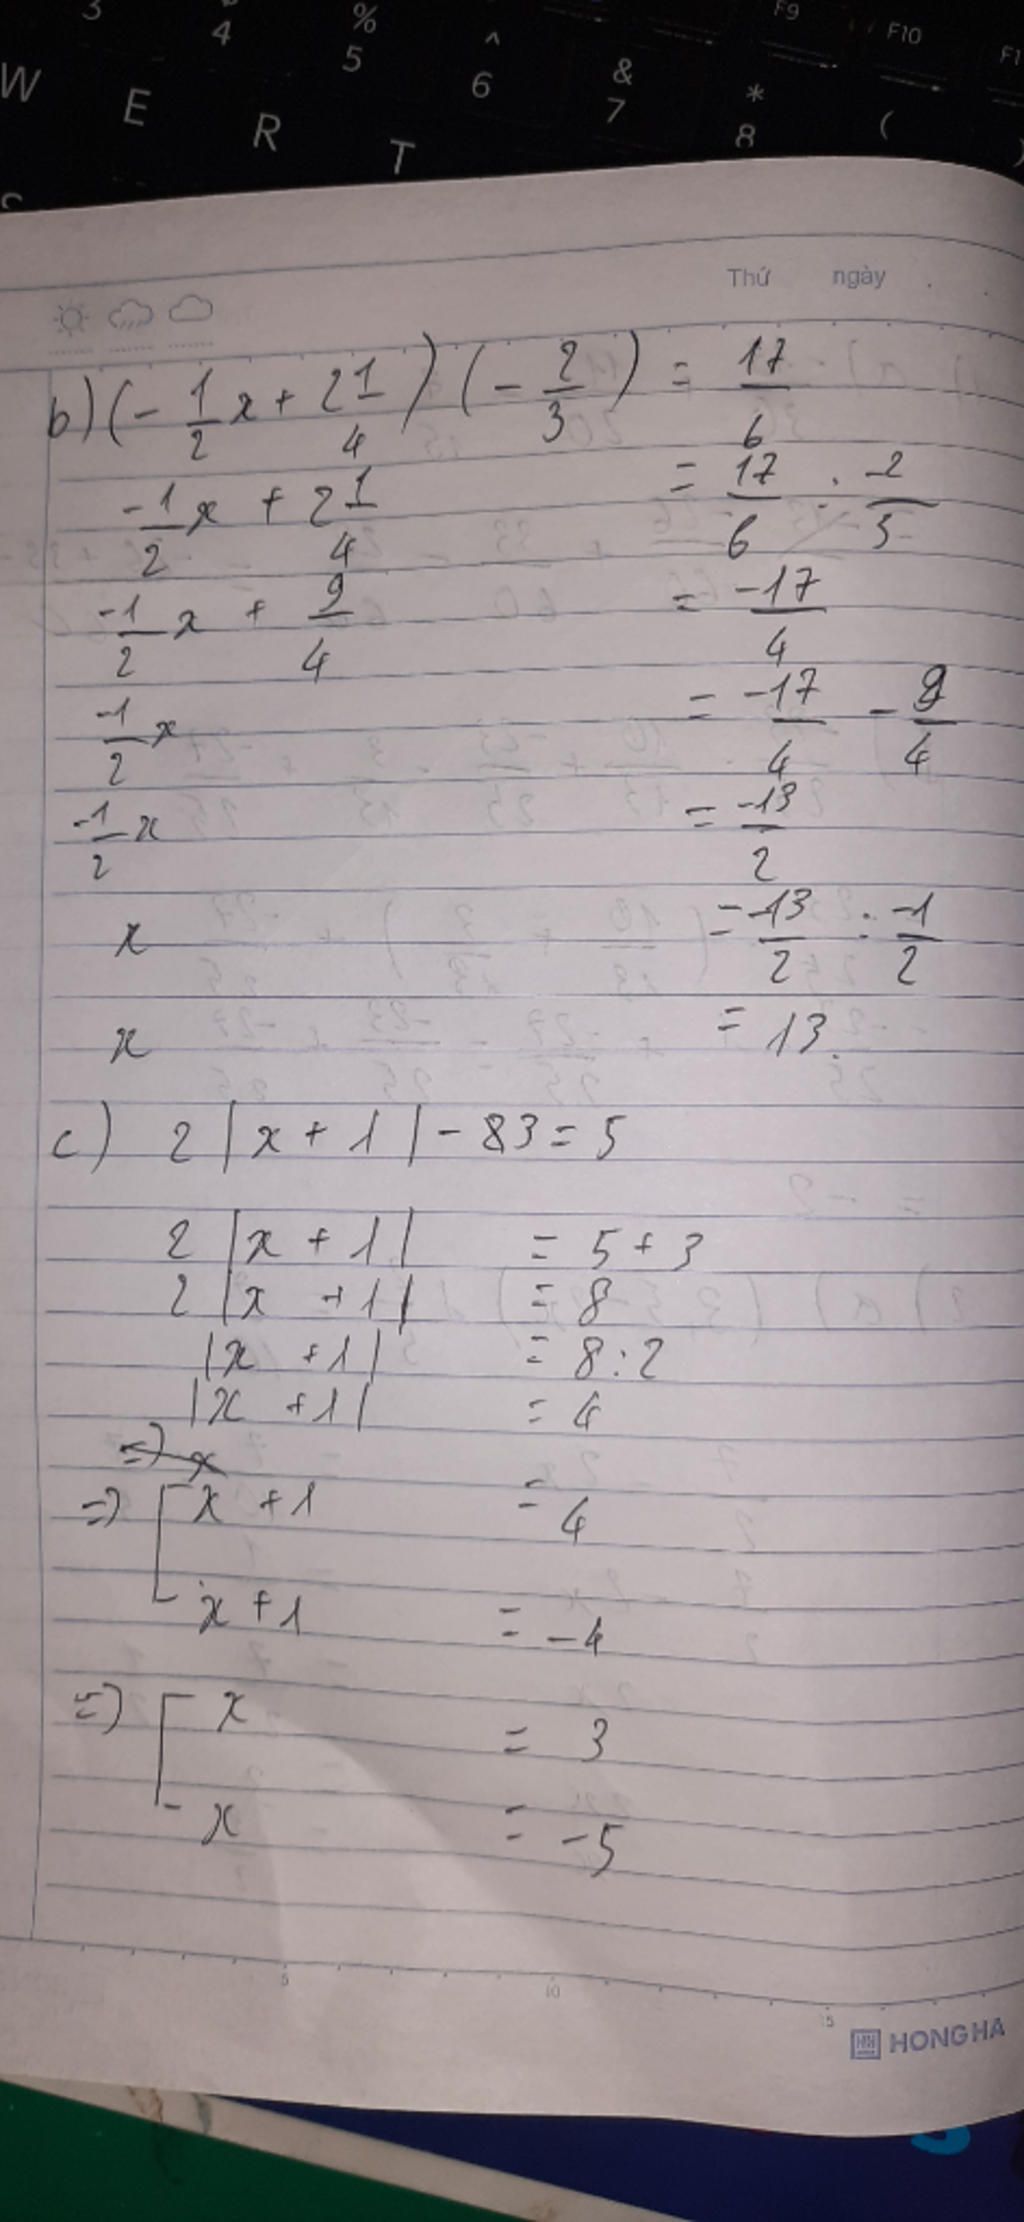 3 4 % 5 ^ 6 & 7 * 8 ( ) F9 F10 F1
W E R T
Thứ ngày
b) (-1/2 x + 2 1/4) (-2/3) = 17/6
-1/2 x + 2 1/4 = 17/6 : -2/3
-1/2 x + 9/4 = -17/4
-1/2 x = -17/4 - 9/4
-1/2 x = -13/2
x = -13/2 : -1/2
x = 13.
c) 2 |x + 1| - 83 = 5
2 |x + 1| = 5 + 3
2 |x + 1| = 8
|x + 1| = 8 : 2
|x + 1| = 4
=> x
=> [ x + 1 = 4
x + 1 = -4
=> [ x = 3
x = -5
5 10 15
HH HONG HA